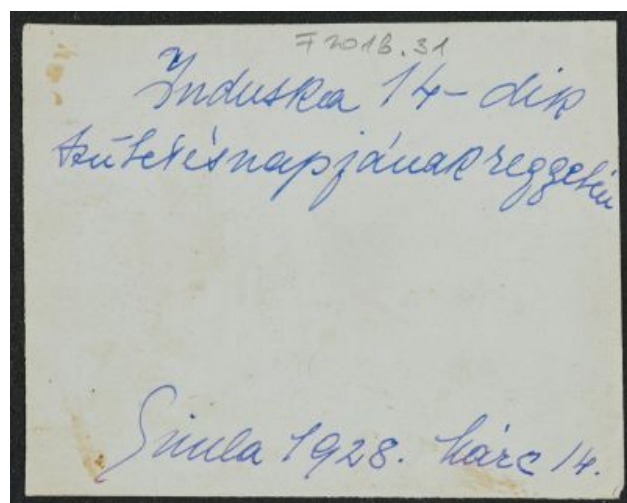 F 2018.31
Induska 14-dik
születésnapjának reggelén
Simla 1928. Márc 14.